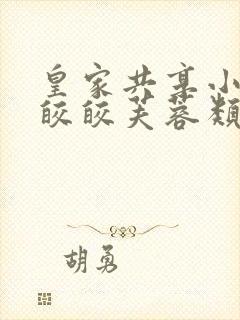 皇家共享小
皎皎芙蓉类
胡勇